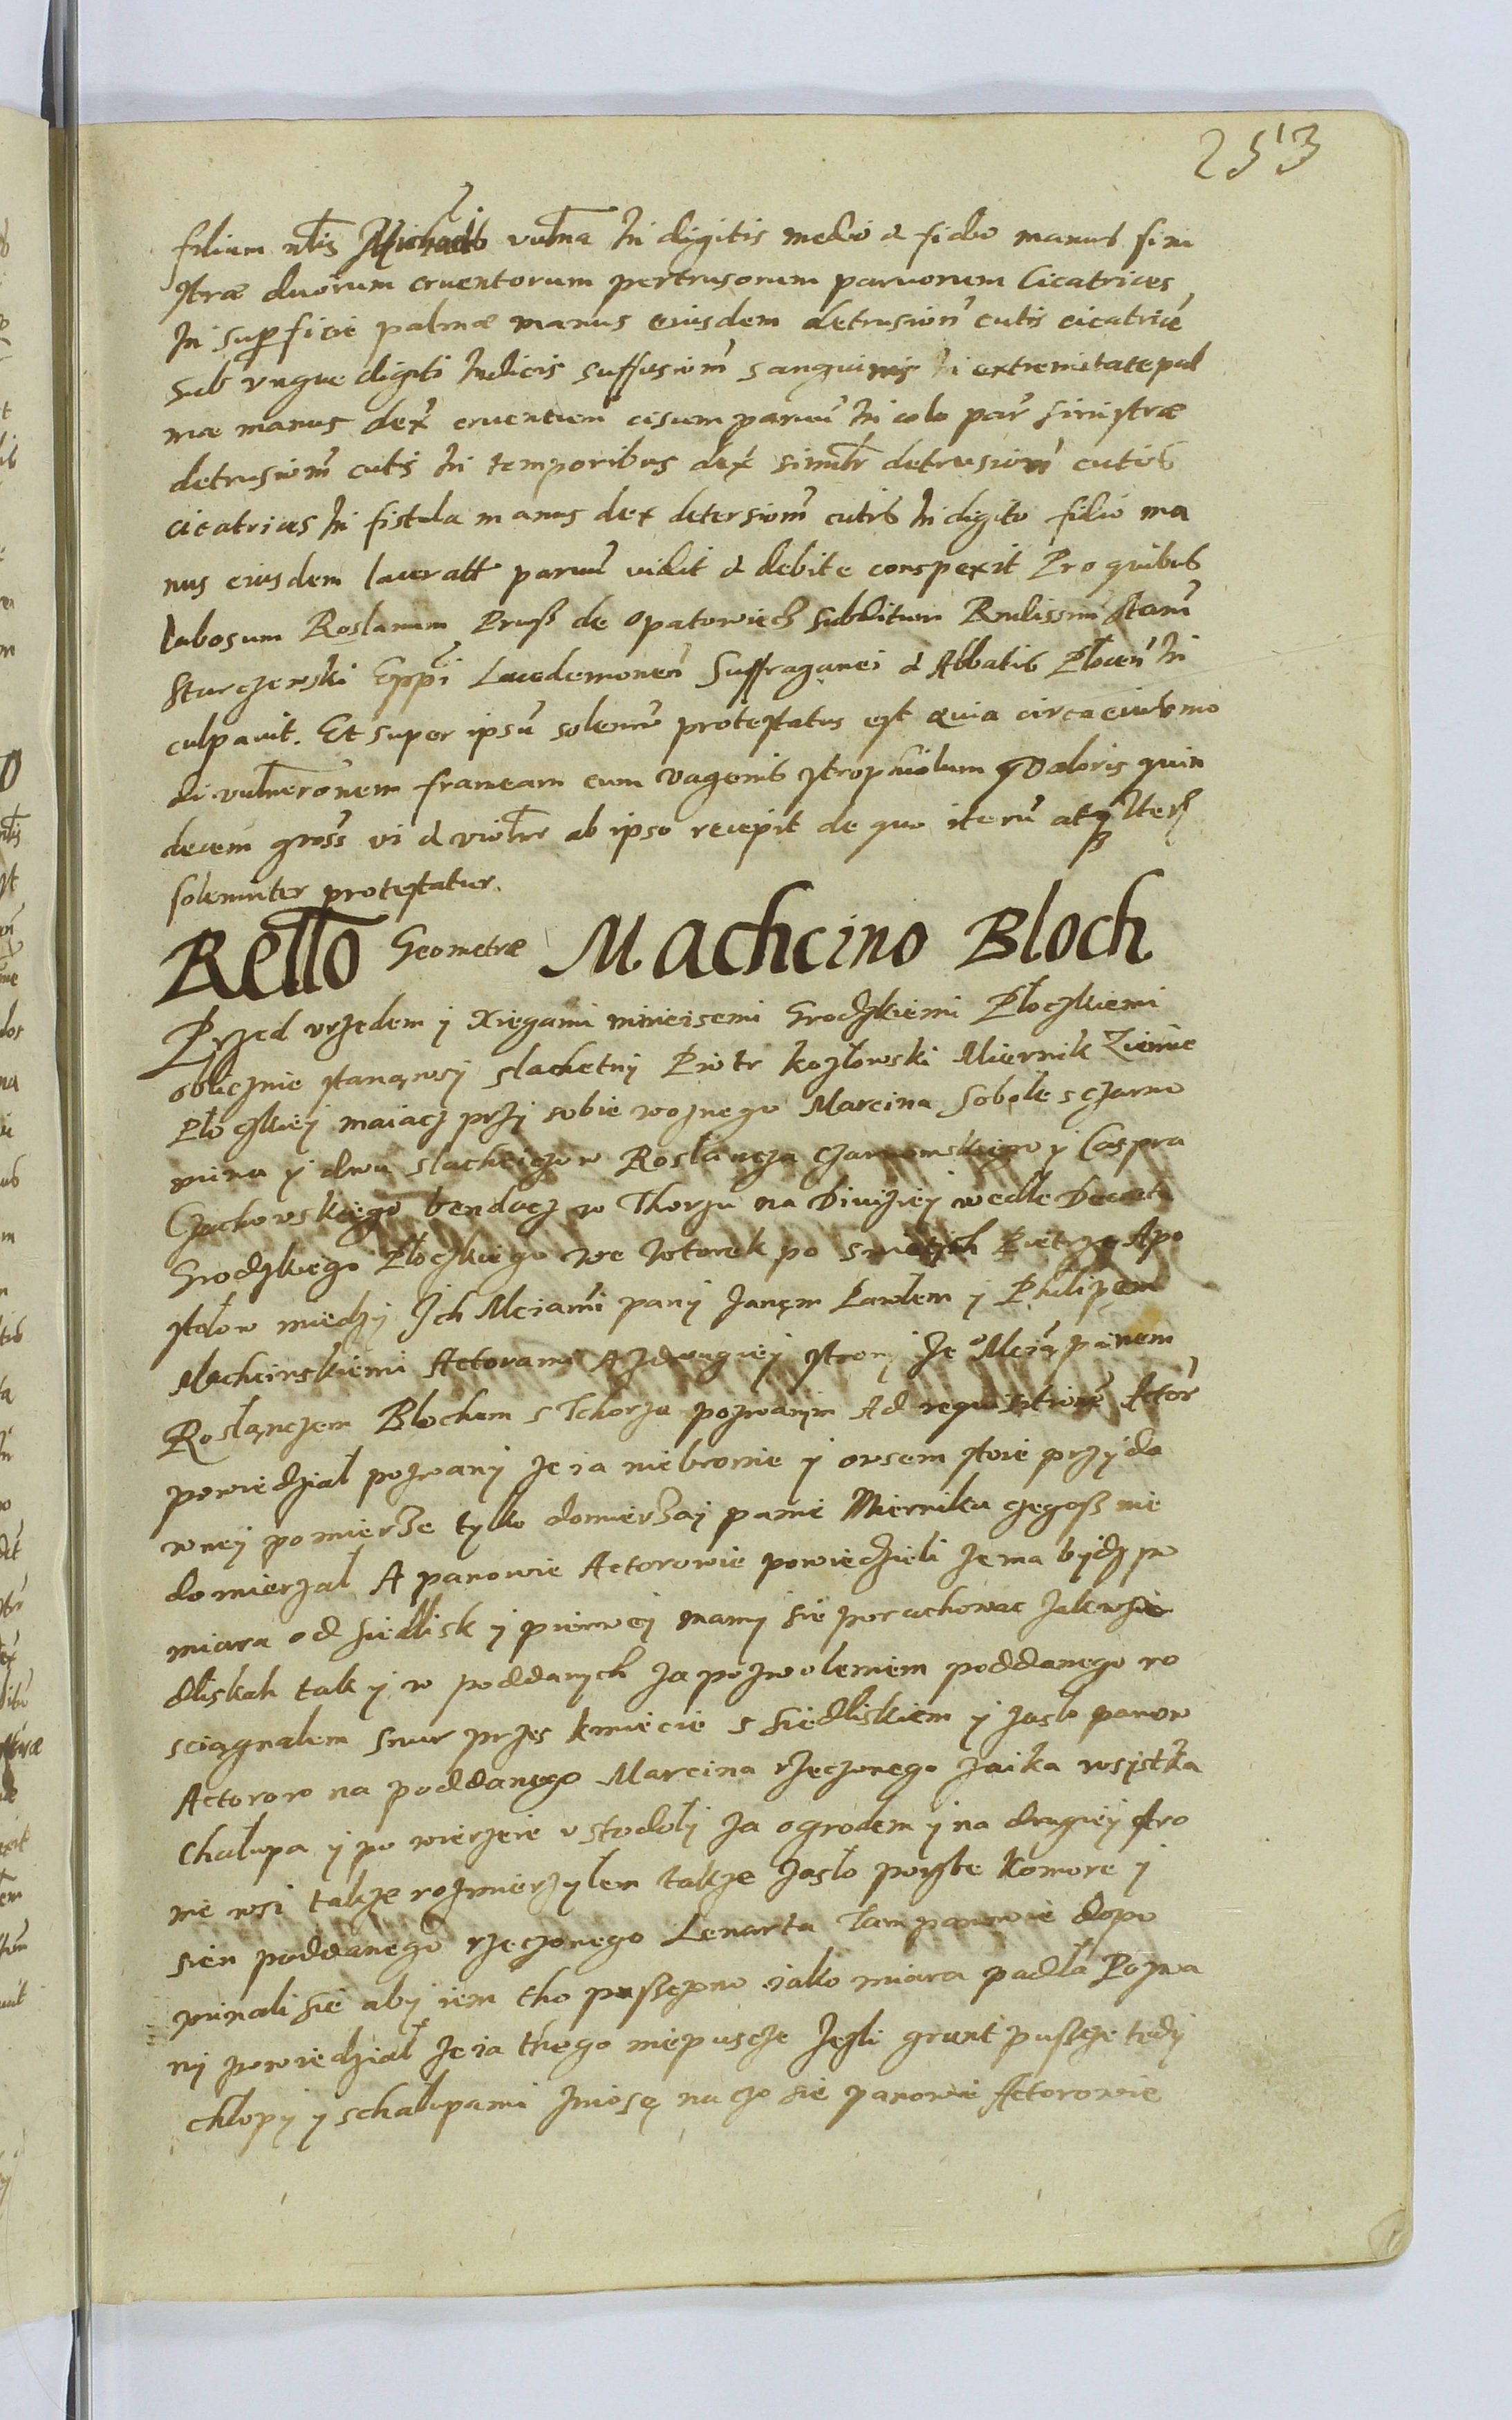 253
filium nlis Michaelis vulna In digitis medio & fidio manus sini
strae duorum cruentorum pertrusorum paruorum Cicatrices
In superficie palmae manus eiusdem detrusion cutis cicatrice
sub vngue digiti Indicis suffusiom sanguinis In extremitate pal
mae manus dex cruentum cisum paruu In colo par sinistrae
detrusiom cutis In temporibus dex similr detrusiom cutis
cicatrices In fistula manus dex detersiom cutis In digito fidio ma
nus eiusdem laceratt paruu vidit & debite conspexit Pro quibus
labosum Roslanum Pruß de Opatowiecz subditum Rndissimi Stani
Starczewski Eppi Lacedemonen Suffraganei & Abbatis Plocen In
culpauit. Et super ipsu solenni protestatus est quia circa eiusmo
di vulneronem frameam cum vagenis strophiolum valoris quin
decem gross vi & violtr ab ipso recepit de quo iteru atq Iteru
solemniter protestatur.
Rello Geometrae Machcino Bloch
Przed vrzedem y Xiegami ninieisemi Grodzkiemi Ploczkiemi
oblicznie stanąwsy slachetny Piotr Kozlowski Miernik Ziemie
Ploczkiey maiacz przy sobie woznego Marcina Sobole s czarno
mina y dwu slachciczow Roslancza Czarnomskiego y Caspra
Czachowskiego bendacz w Thorzu na Diuiziey wedle Decretu
Grodzkiego Ploczkiego we wtorek po swietych Pietrze Apo
stolow miedzy Ich Mciami pany Janem Pawlem y Philipem
Machcinskiemi Actorami A z drugiey strony Je Mcią panem
Roslanczem Blochem s Tchorza pozwanym Ad requisitione Actor
powiedzial pozwany ze ia nie bronie y owsem stoie przy da
wney pomierze tylko domierzay panie Mierniku czegoß nie
domierzal A panowie Actorowie powiedzieli ze ma bydz po
miara od siedlisk y pierwey mamy sie porachowac jako w sie
dliskah tak y w poddanych za pozwoleniem poddanego ro
sciągnalem snur przes kmiecie s siedliskiem y zaslo panow
Actorow na poddanego Marcina rzeczonego Zaika wsystka
chalupa y po wierzeie v stodoly za ogrodem y na drugiey stro
nie wsi takze rozmierzylem takze zaslo puste komore y
sien poddanego rzeczonego Lenarta Tam panowie dopo
minali sie aby iem tho pussczono iako miara padla Pozwa
ny powiedzial ze ia thego nie puscze Jezli grunt pußcze tedy
chlopy y schalupami zniosę na czo sie panowie Actorowie